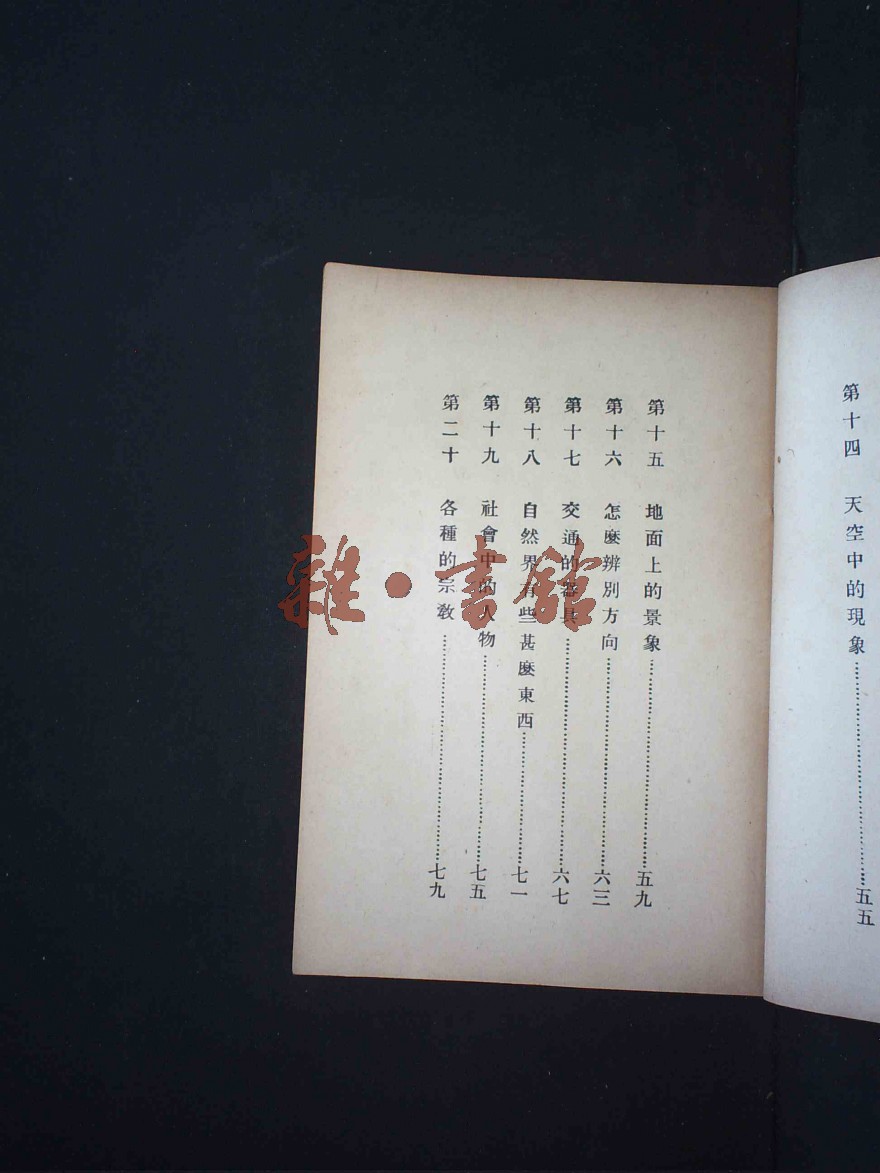 第十四 天空中的現象……五五
第十五 地面上的景象……五九
第十六 怎麼辨別方向……六三
第十七 交通的器具……六七
第十八 自然界有些甚麼東西……七一
第十九 社會中的人物……七五
第二十 各種的宗教……七九
雜·書館